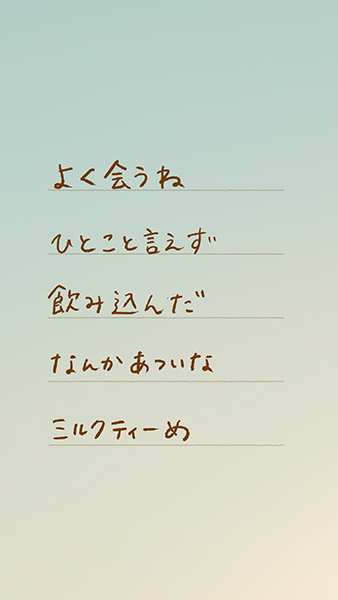 よく会うね
ひとこと言えず
飲み込んだ
なんかあついな
ミルクティーめ